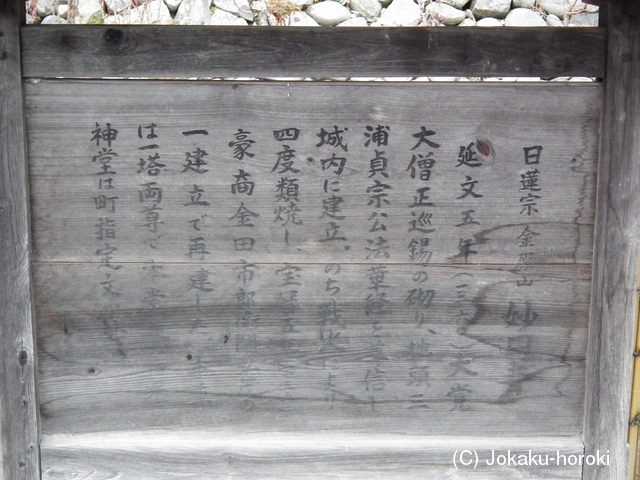 日蓮宗 金龍山 妙
延文五年(一三六〇)大覚
大僧正巡錫の砌り、地頭三
浦貞宗公法華経を信し
城内に建立。のち戦火により
四度類焼し、宝暦五年
豪商金田市郎
一建立で再建した
は一塔両尊で
神堂は町指定文
(C) Jokaku-horoki